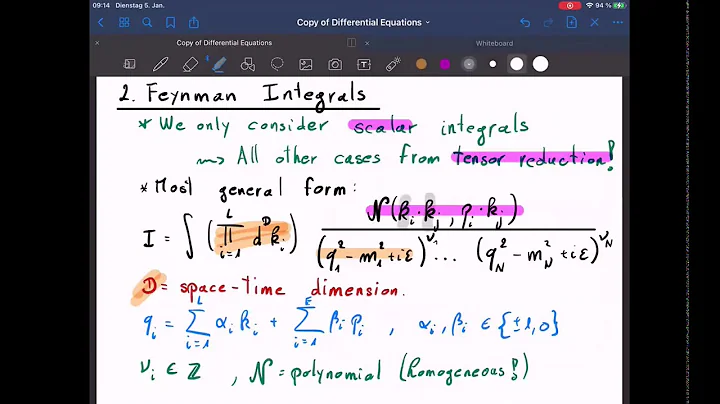 09:14 Dienstag 5. Jan.
94 %
Copy of Differential Equations
Copy of Differential Equations
Whiteboard
2. Feynman Integrals
* We only consider scalar integrals
⇝ All other cases from tensor reduction!
* Most general form:
I = ∫ (∏_{i=1}^{L} d^D k_i) N(k_i·k_j, p_i·k_j) / ((q_1^2 - m_1^2 + iε)^{ν_1} ... (q_N^2 - m_N^2 + iε)^{ν_N})
D = space-time dimension.
q_i = ∑_{i=1}^{L} α_i k_i + ∑_{i=1}^{E} β_i p_i , α_i, β_i ∈ {±1, 0}
ν_i ∈ ℤ , N = polynomial (homogeneous!)